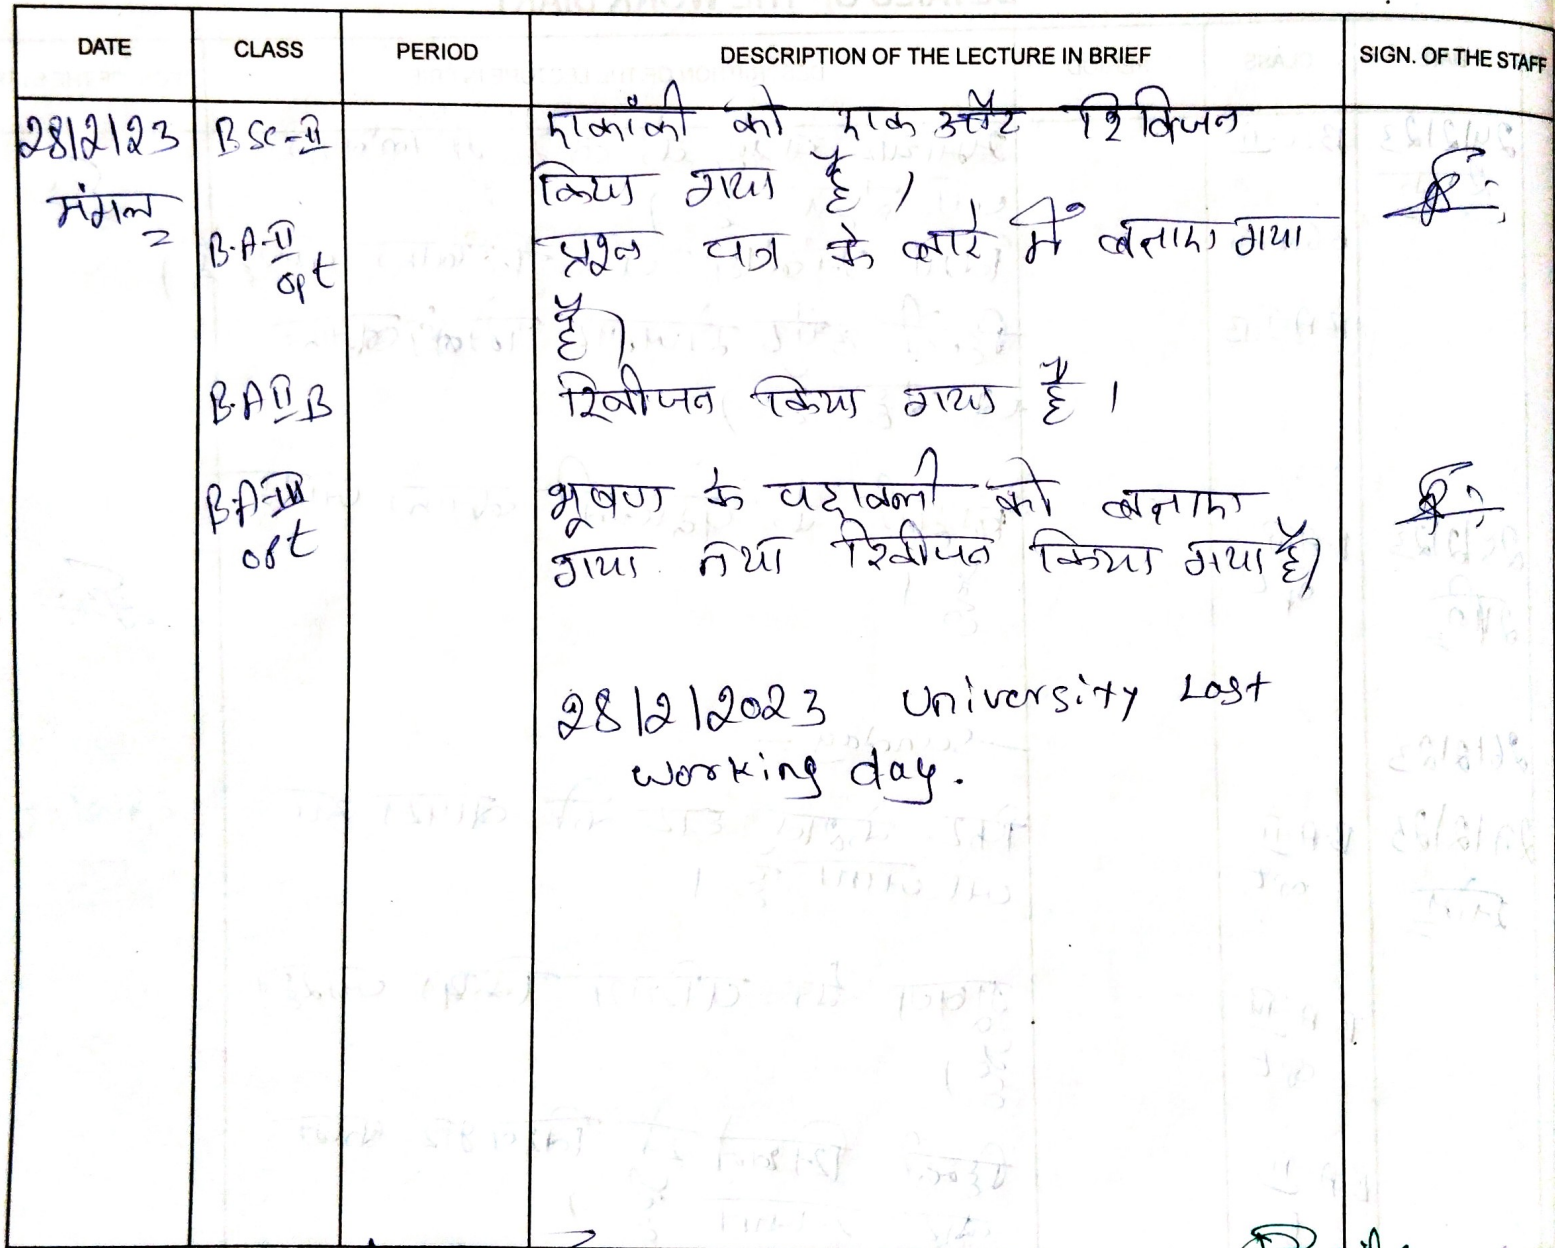 DATE CLASS PERIOD DESCRIPTION OF THE LECTURE IN BRIEF SIGN. OF THE STAFF
28/2/23 BSc-II एकांकी को एक और रिविजन
मंगल किया गया है।
B.A-II प्रश्न पत्र के बारे में बताया गया
opt
है।
B.A II B रिवीजन किया गया है।
B.A-III भूषण के पदावली को बताया
opt गया तथा रिवीजन किया गया है।
28/2/2023 University Last
working day.